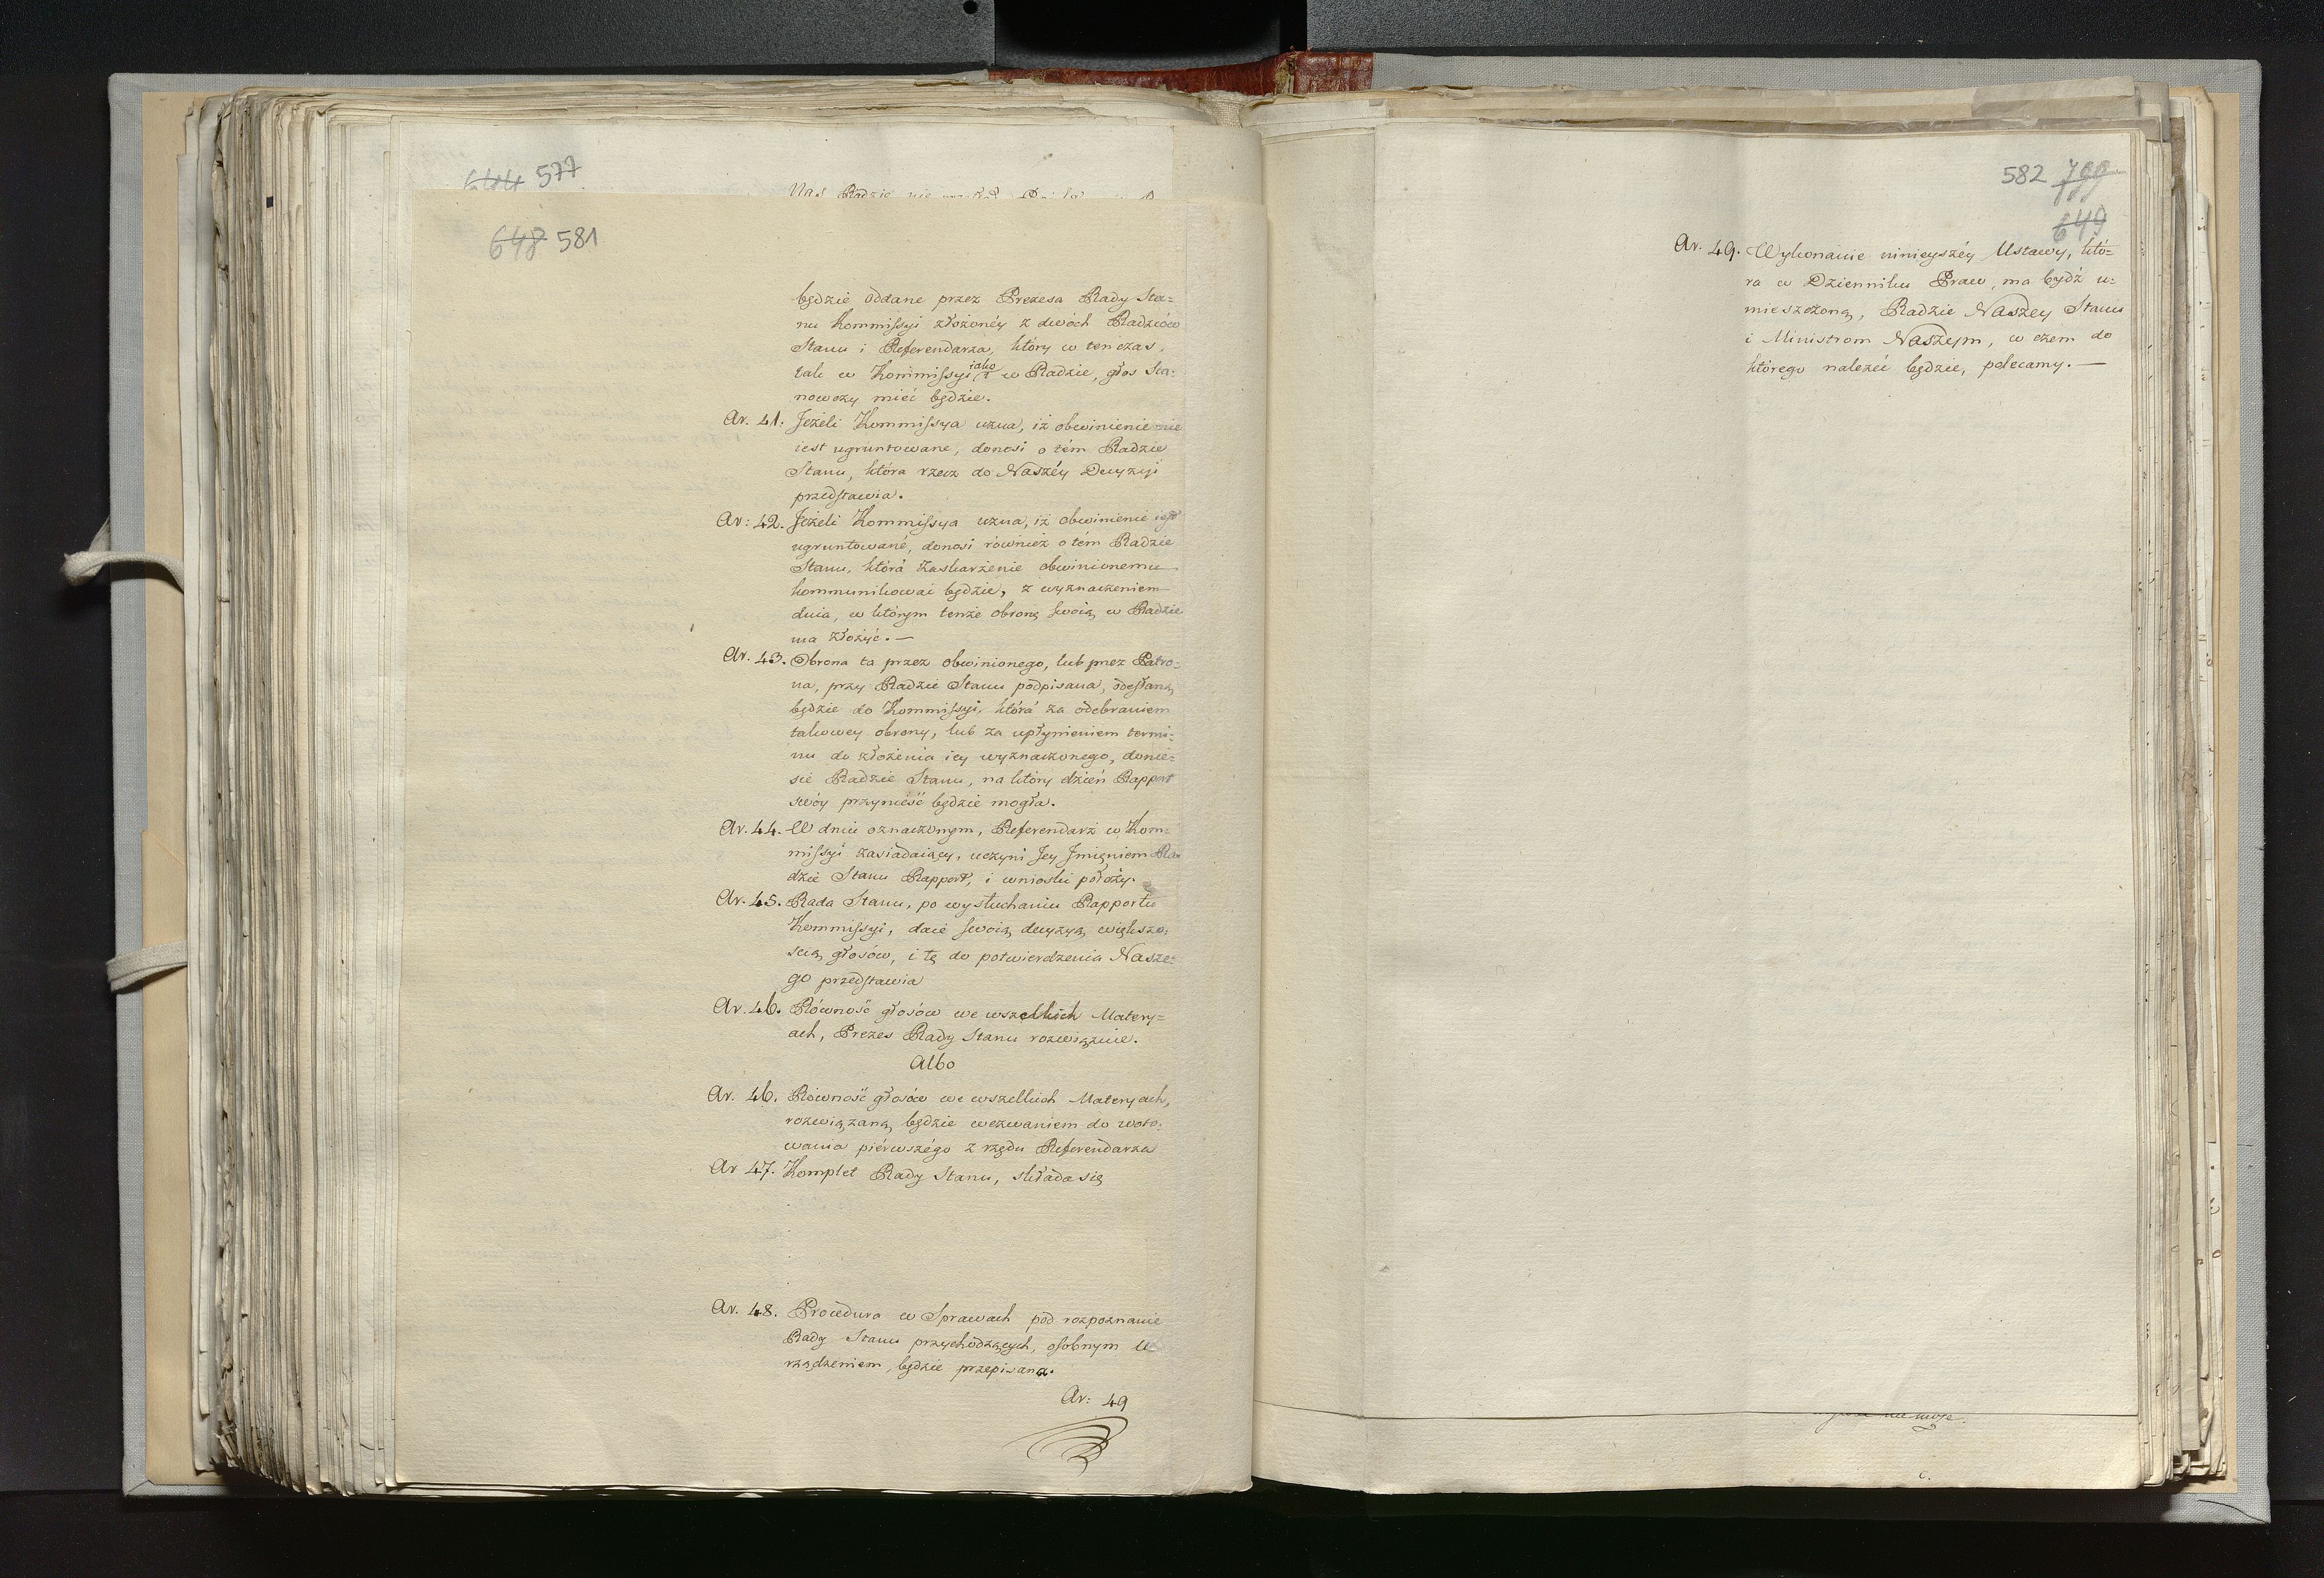 644 577
648 581
będzie oddane przez Prezesa Rady Sta=
nu Kommissyi złożonéy z dwóch Radzców
Stanu i Referendarza, który w ten czas,
tak w Kommissyi iako i w Radzie, głos sta=
nowczy mieć będzie.
Ar. 41. Jeżeli Kommissya uzna, iż obwinienie nie
iest ugruntowane, donosi o tém Radzie
Stanu, która rzecz do Naszéy Decyzyi
przedstawia.
Ar: 42. Jeżeli Kommissya uzna, iż obwinienie iest
ugruntowané, donosi również o tém Radzie
Stanu, która zaskarżenie obwinionemu
kommunikować będzie, z wyznaczeniem
dnia, w którym tenże obronę swoią w Radzie
ma złożyć. —
Ar. 43. Obrona ta przez obwinionego, lub przez Patro=
na, przy Radzie Stanu podpisana, odesłaną
będzie do Kommissyi, która za odebraniem
takowey obrony, lub za upłynieniem termi=
nu do złożenia iey wyznaczonego, donie=
sie Radzie Stanu, na który dzień Rapport
swóy przynieść będzie mogła.
Ar. 44. W dniu oznaczonym, Referendarz w Kom=
missyi zasiadaiący, uczyni Jey Imieniem Ra=
dzie Stanu Rapport, i wnioski położy.
Ar. 45. Rada Stanu, po wysłuchaniu Rapportu
Kommissyi, daie swoią decyzyą większo=
scią głosów, i tę do potwierdzenia Nasze=
go przedstawia
Ar. 46. Równość głosów we wszelkich Matery=
ach, Prezes Rady Stanu rozwiązuie.
Albo
Ar. 46. Równość głosów we wszelkich Materyach,
rozwiązaną będzie wezwaniem do woto=
wania piérwszégo z rzędu Referendarza
Ar 47. Komplet Rady Stanu, składa się
Ar. 48. Procedura w Sprawach pod rozpoznanie
Rady Stanu przychodzących, osobnym U=
rządzeniem, będzie przepisana.
Ar: 49
582 799
649
Ar. 49. Wykonanie ninieyszéy Ustawy, któ=
ra w Dzienniku Praw, ma bydź u=
mieszczoną, Radzie Naszey Stanu
i Ministrom Naszym, w czem do
którego należeć będzie, polecamy. —